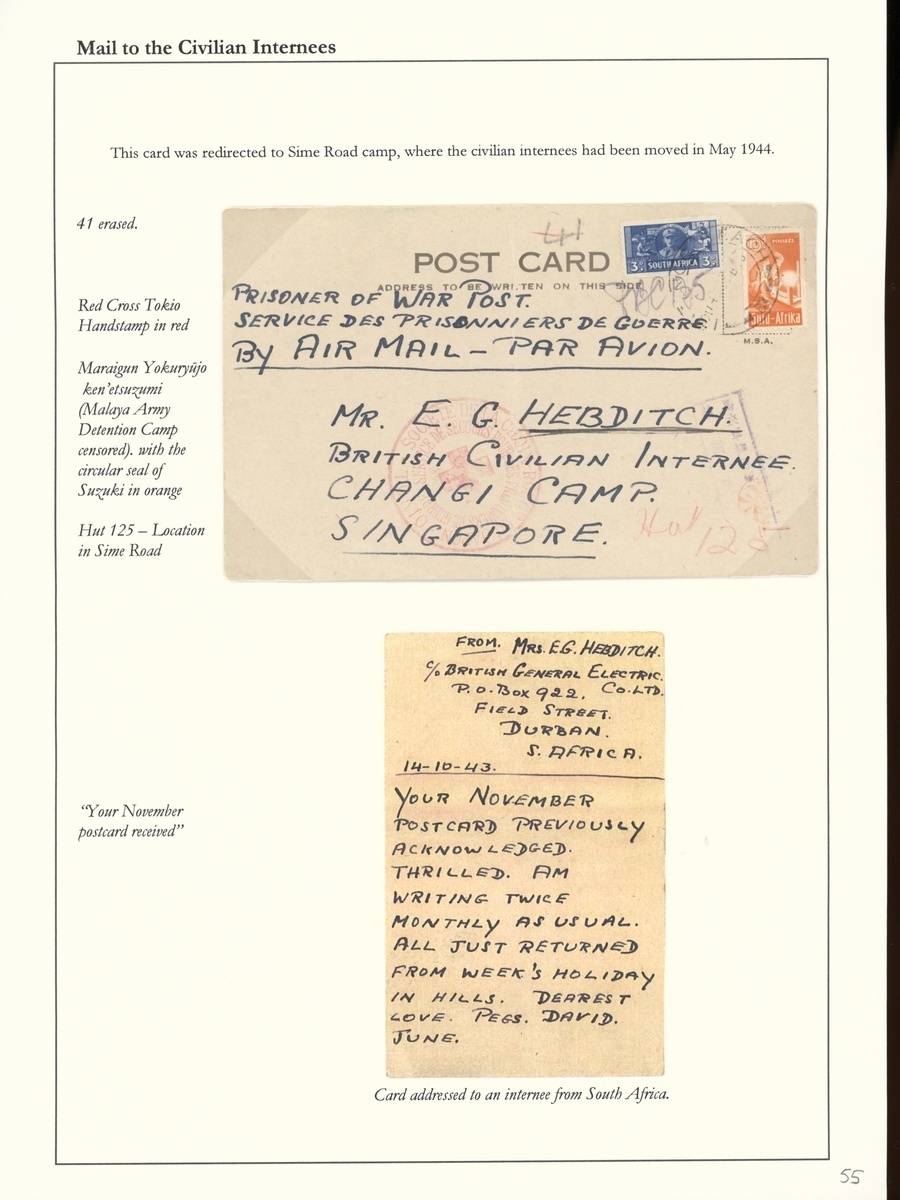 Mail to the Civilian Internees
This card was redirected to Sime Road camp, where the civilian internees had been moved in May 1944.
41 erased.
Red Cross Tokio
Handstamp in red
Maraigun Yokuryūjo
ken'etsuzumi
(Malaya Army
Detention Camp
censored). with the
circular seal of
Suzuki in orange
Hut 125 – Location
in Sime Road
41
POST CARD
ADDRESS TO BE WRITTEN ON THIS SIDE
3D SOUTH AFRICA 3D
POSSEEL
Suid-Afrika
M.S.A.
PRISONER OF WAR POST.
SERVICE DES PRISONNIERS DE GUERRE.
BY AIR MAIL – PAR AVION.
MR. E. G. HEBDITCH.
BRITISH CIVILIAN INTERNEE.
CHANGI CAMP.
SINGAPORE.
Hut
125
FROM. MRS. E.G. HEBDITCH.
c/o BRITISH GENERAL ELECTRIC.
P.O. BOX 922. CO. LTD.
FIELD STREET.
DURBAN.
S. AFRICA.
14-10-43.
YOUR NOVEMBER
POSTCARD PREVIOUSLY
ACKNOWLEDGED.
THRILLED. AM
WRITING TWICE
MONTHLY AS USUAL.
ALL JUST RETURNED
FROM WEEK'S HOLIDAY
IN HILLS. DEAREST
LOVE. PEGS. DAVID.
JUNE.
"Your November
postcard received"
Card addressed to an internee from South Africa.
55